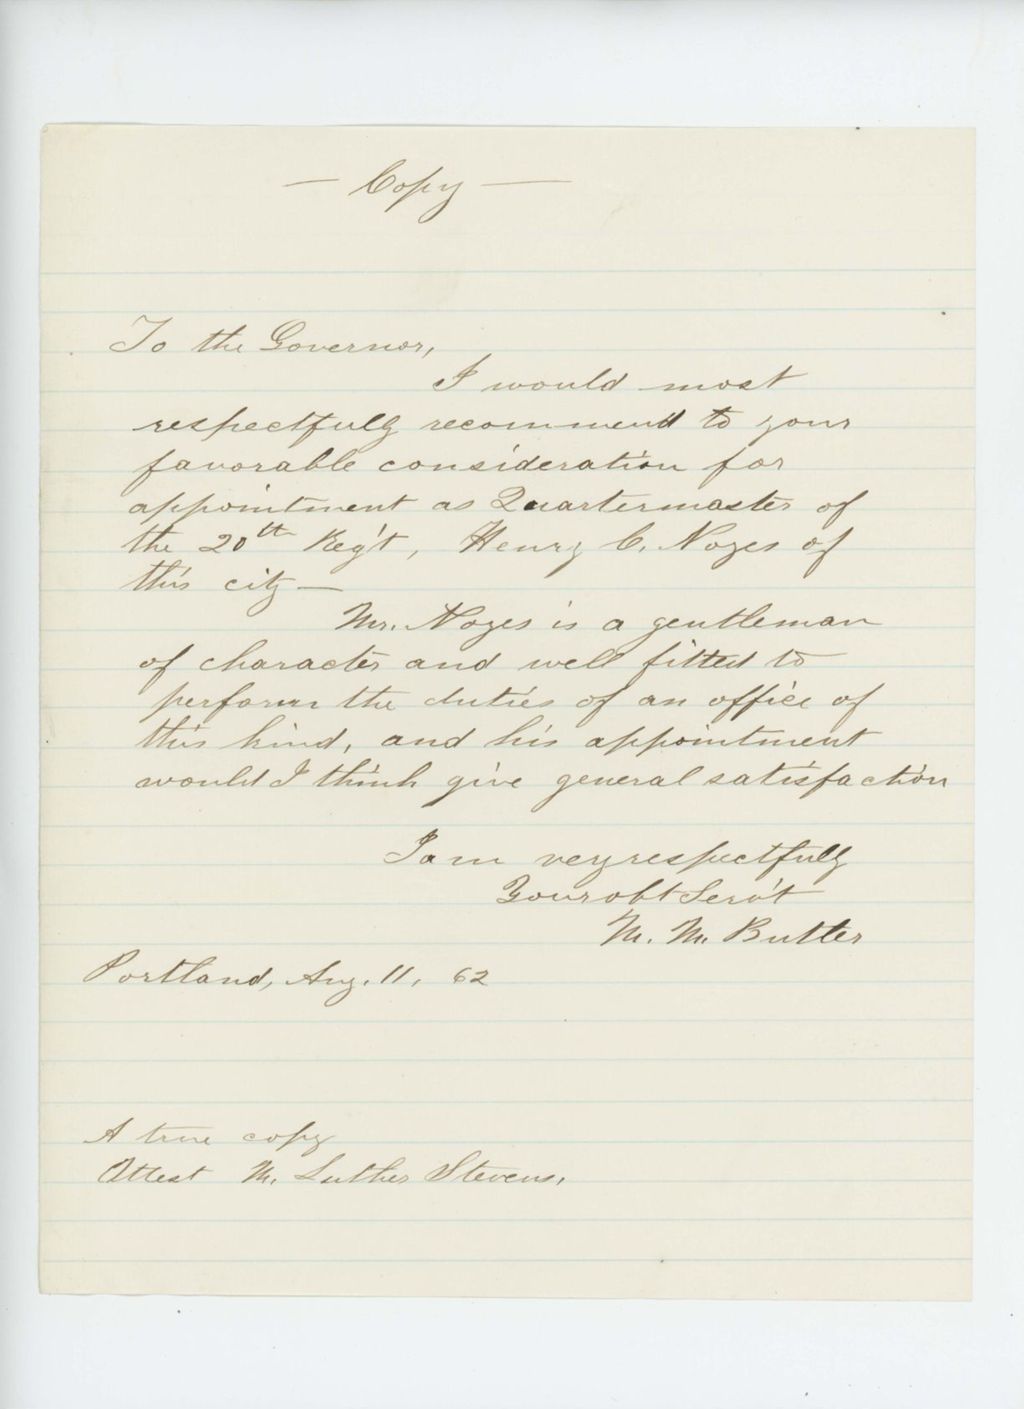 — Copy —
To the Governor,
I would most
respectfully recommend to your
favorable consideration for
appointment as Quartermaster of
the 20th Reg't, Henry C. Noyes of
this city —
Mr. Noyes is a gentleman
of character and well fitted to
perform the duties of an office of
this kind, and his appointment
would I think give general satisfaction
I am very respectfully
Your obt Serv't
M. M. Butler
Portland, Aug. 11, 62
A true copy
Attest M. Luther Stevens,